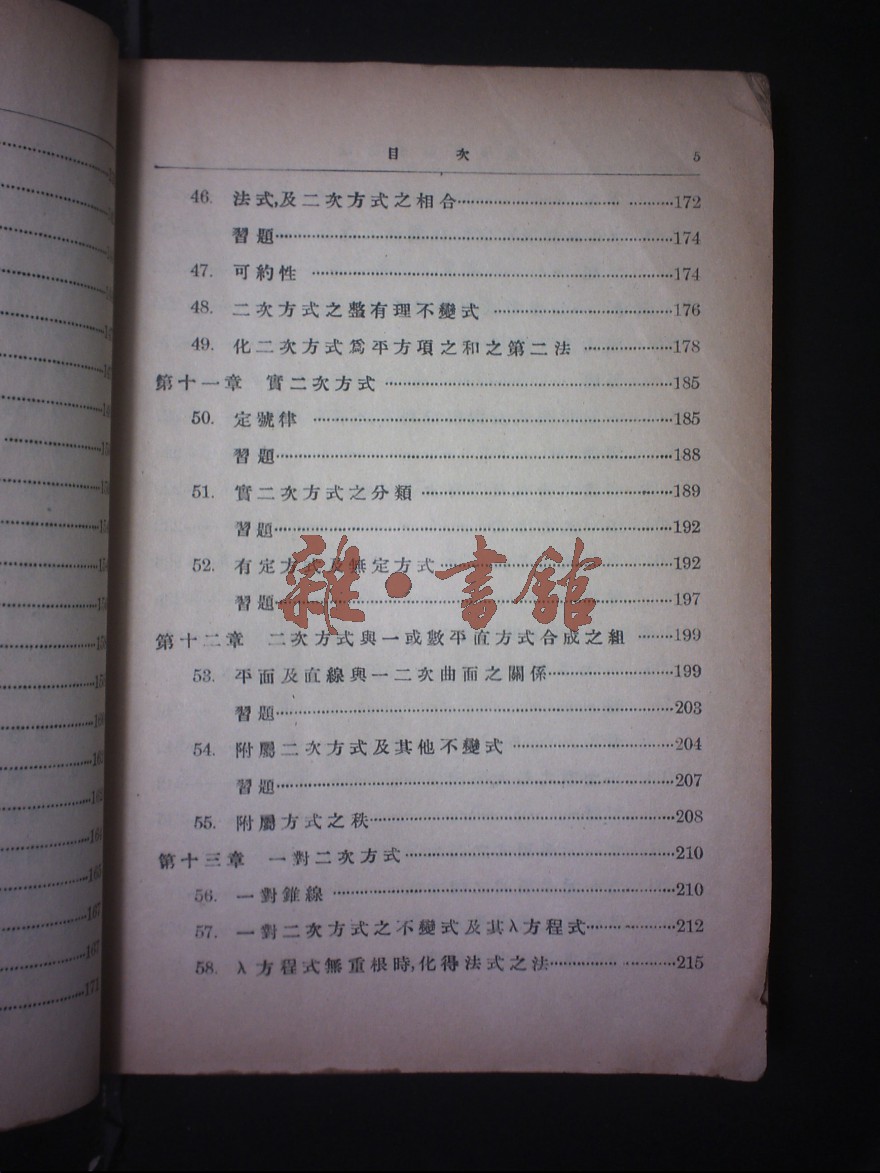 目 次 5
46. 法式,及二次方式之相合………172
習題………174
47. 可約性………174
48. 二次方式之整有理不變式………176
49. 化二次方式爲平方項之和之第二法………178
第十一章 實二次方式………185
50. 定號律………185
習題………188
51. 實二次方式之分類………189
習題………192
52. 有定方式及無定方式………192
習題………197
第十二章 二次方式與一或數平直方式合成之組………199
53. 平面及直線與一二次曲面之關係………199
習題………203
54. 附屬二次方式及其他不變式………204
習題………207
55. 附屬方式之秩………208
第十三章 一對二次方式………210
56. 一對錐線………210
57. 一對二次方式之不變式及其λ方程式………212
58. λ方程式無重根時,化得法式之法………215
雜·書館